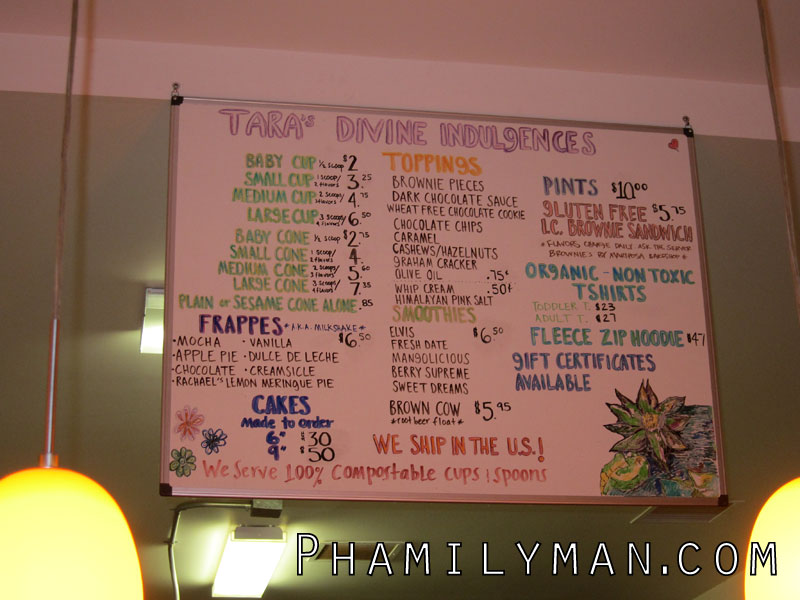 TARA'S DIVINE INDULGENCES
BABY CUP ½ SCOOP $2
SMALL CUP 1 SCOOP/ 2 flavors 3.25
MEDIUM CUP 2 SCOOPS/ 3 flavors 4.75
LARGE CUP 3 SCOOPS/ 4 flavors 6.50
BABY CONE ½ SCOOP $2.75
SMALL CONE 1 SCOOP/ 2 flavors 4.
MEDIUM CONE 2 SCOOPS/ 3 flavors 5.60
LARGE CONE 3 SCOOPS/ 4 flavors 7.35
PLAIN or SESAME CONE ALONE .85
FRAPPES *A.K.A. MILKSHAKE* $6.50
·MOCHA ·VANILLA
·APPLE PIE ·DULCE DE LECHE
·CHOCOLATE ·CREAMSICLE
·RACHAEL'S LEMON MERINGUE PIE
CAKES
Made to order
6" $30
9" $50
TOPPINGS
BROWNIE PIECES
DARK CHOCOLATE SAUCE
WHEAT FREE CHOCOLATE COOKIE
CHOCOLATE CHIPS
CARAMEL
CASHEWS/HAZELNUTS
GRAHAM CRACKER
OLIVE OIL .75¢
WHIP CREAM .50¢
HIMALAYAN PINK SALT
SMOOTHIES
ELVIS $6.50
FRESH DATE
MANGOLICIOUS
BERRY SUPREME
SWEET DREAMS
BROWN COW $5.95
*root beer float*
PINTS $10.00
GLUTEN FREE $5.75
I.C. BROWNIE SANDWICH
*FLAVORS CHANGE DAILY ASK THE SERVER
BROWNIES BY MARIPOSA BAKERY*
ORGANIC - NON TOXIC
TSHIRTS
TODDLER T. $23
ADULT T. $27
FLEECE ZIP HOODIE $47
GIFT CERTIFICATES
AVAILABLE
WE SHIP IN THE U.S.!
We Serve 100% Compostable cups & spoons
PHAMILYMAN.COM